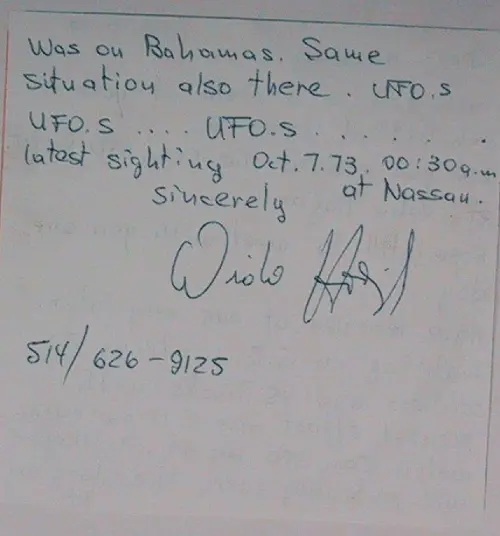 Was on Bahamas. Same
situation also there. UFO.s
UFO.s .... UFO.s . . . . . .
latest sighting Oct. 7. 73. 00:30 a.m
sincerely at Nassau.
514/626-9125